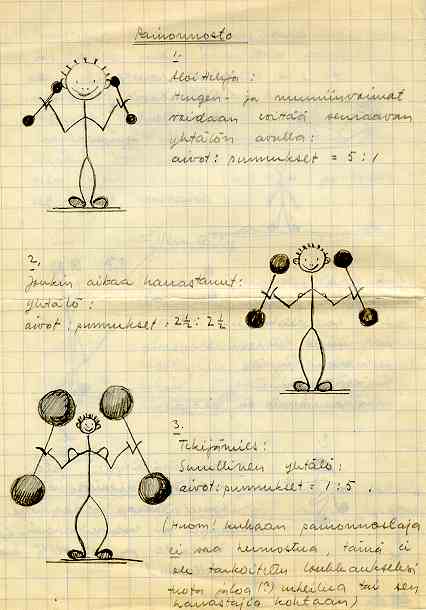 Painonnosto
1.
Aloittelija:
Hengen- ja ruumiinvoimat
voidaan esittää seuraavan
yhtälön avulla:
aivot: pummukset = 5:1
2.
Jonkin aikaa harrastanut:
yhtälö:
aivot: pummukset = 2½: 2½
3.
Tekijämies:
Surullinen yhtälö:
aivot: pummukset = 1:5.
(Huom! Kukaan painonnostaja
ei saa hermostua, tämä ei
ole tarkoitettu loukkaukseksi
tuota jaloa (?) urheilua tai sen
harrastajia kohtaan)